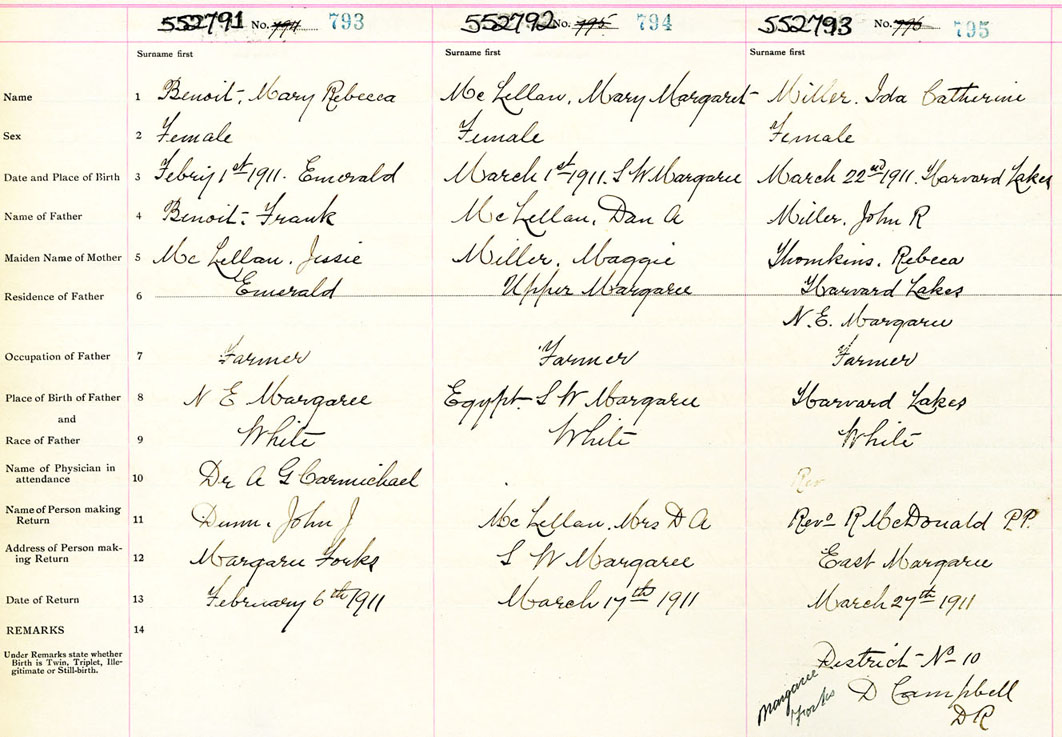 552791 No. 794 793 552792 No. 795 794 552793 No. 796 795
Surname first Surname first Surname first
Name 1 Benoit, Mary Rebecca Mc Lellan, Mary Margaret Miller. Ida Catherine
Sex 2 Female Female Female
Date and Place of Birth 3 Febry 1st 1911. Emerald March 1st 1911. S W Margaree March 22nd 1911. Harvard Lakes
Name of Father 4 Benoit, Frank Mc Lellan, Dan A Miller, John R
Maiden Name of Mother 5 Mc Lellan, Jessie Miller, Maggie Thomkins, Rebecca
Residence of Father 6 Emerald Upper Margaree Harvard Lakes
N. E. Margaree
Occupation of Father 7 Farmer Farmer Farmer
Place of Birth of Father 8 N E Margaree Egypt S W Margaree Harvard Lakes
and
Race of Father 9 White White White
Name of Physician in
attendance 10 Dr A G Carmichael Rev
Name of Person making
Return 11 Dunn, John J Mc Lellan, Mrs D A Revd R McDonald P.P.
Address of Person mak-
ing Return 12 Margaree Forks S W Margaree East Margaree
Date of Return 13 February 6th 1911 March 17th 1911 March 27th 1911
REMARKS 14
Under Remarks state whether
Birth is Twin, Triplet, Ille-
gitimate or Still-birth.
District No 10
Margaree
Forks
D Campbell
DR